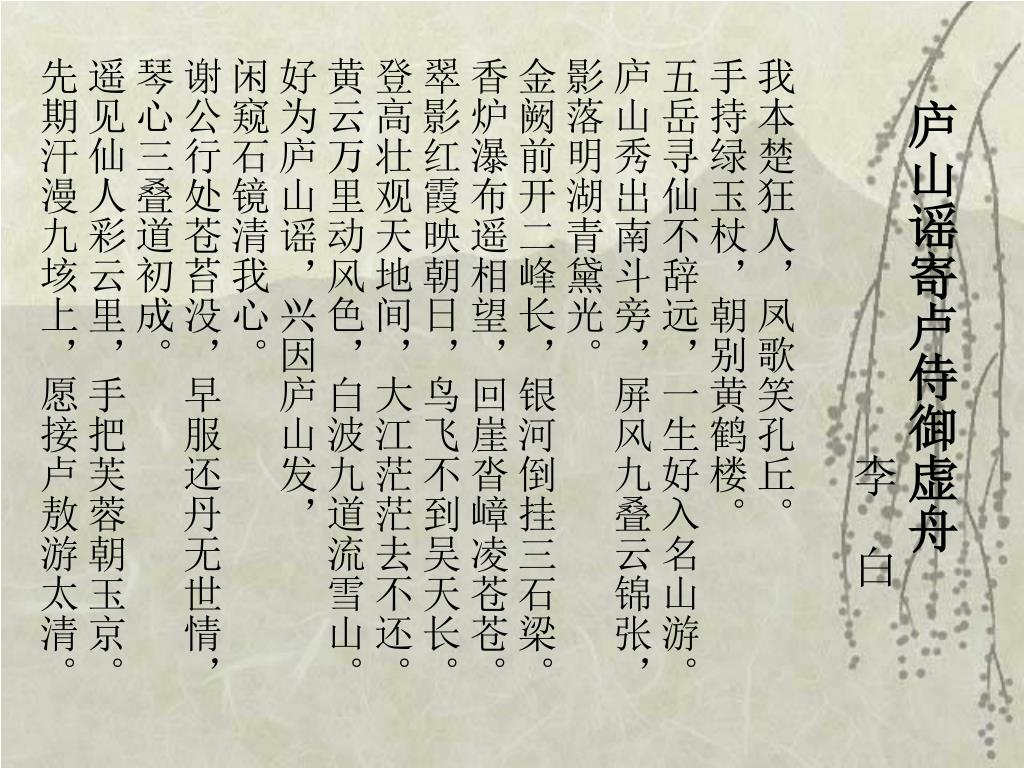 庐山谣寄卢侍御虚舟
李 白
我本楚狂人，凤歌笑孔丘。
手持绿玉杖，朝别黄鹤楼。
五岳寻仙不辞远，一生好入名山游。
庐山秀出南斗旁，屏风九叠云锦张，
影落明湖青黛光。
金阙前开二峰长，银河倒挂三石梁。
香炉瀑布遥相望，回崖沓嶂凌苍苍。
翠影红霞映朝日，鸟飞不到吴天长。
登高壮观天地间，大江茫茫去不还。
黄云万里动风色，白波九道流雪山。
好为庐山谣，兴因庐山发，
闲窥石镜清我心。
谢公行处苍苔没，早服还丹无世情，
琴心三叠道初成。
遥见仙人彩云里，手把芙蓉朝玉京。
先期汗漫九垓上，愿接卢敖游太清。